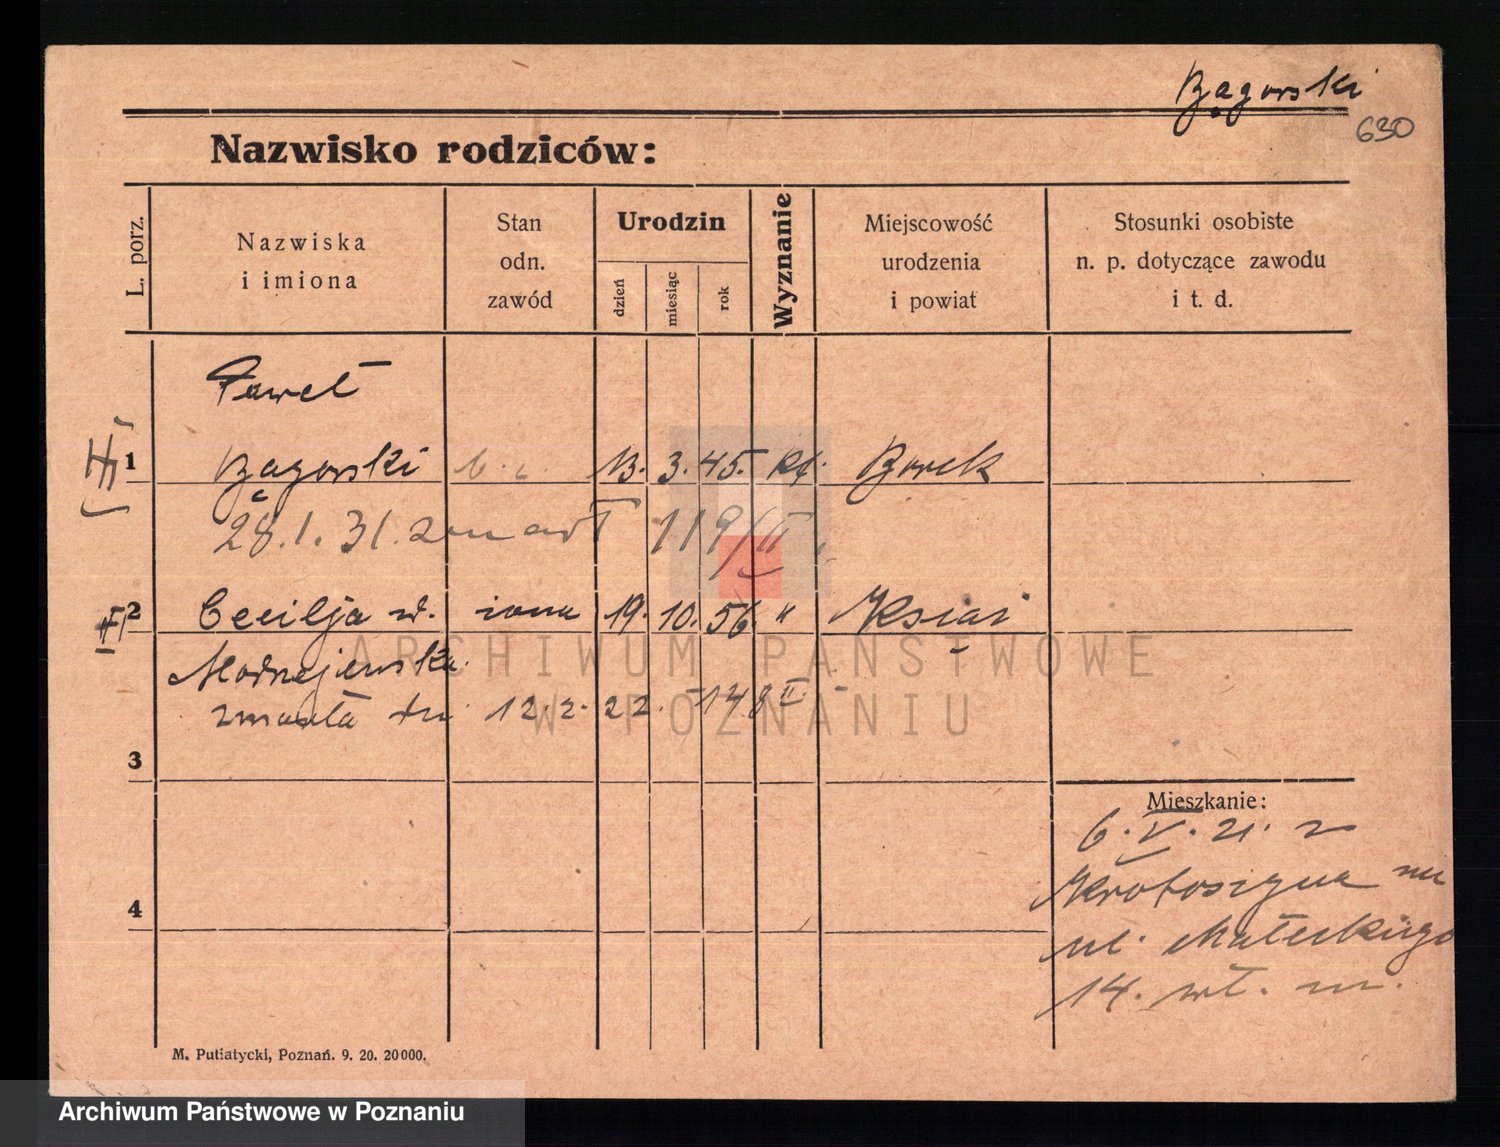 Bągorski
630
Nazwisko rodziców:
L. porz.
Nazwiska
i imiona
Stan
odn.
zawód
Urodzin
dzień
miesiąc
rok
Wyznanie
Miejscowość
urodzenia
i powiat
Stosunki osobiste
n. p. dotyczące zawodu
i t. d.
Paweł
1 Bągorski 13. 3. 45. kt. Borek
28.1.31. zmarł 119/II
2 Cecilja żona 19. 10. 56. " Ksiąź
Modrzejewska
zmarła dn. 12.2.22. 148 II
3
Mieszkanie:
6.V.21. z
Krotoszyna na
4
ul. Małeckiego
14. wł. m.
M. Putiatycki, Poznań. 9. 20. 20000.
ARCHIWUM PAŃSTWOWE
W POZNANIU
Archiwum Państwowe w Poznaniu